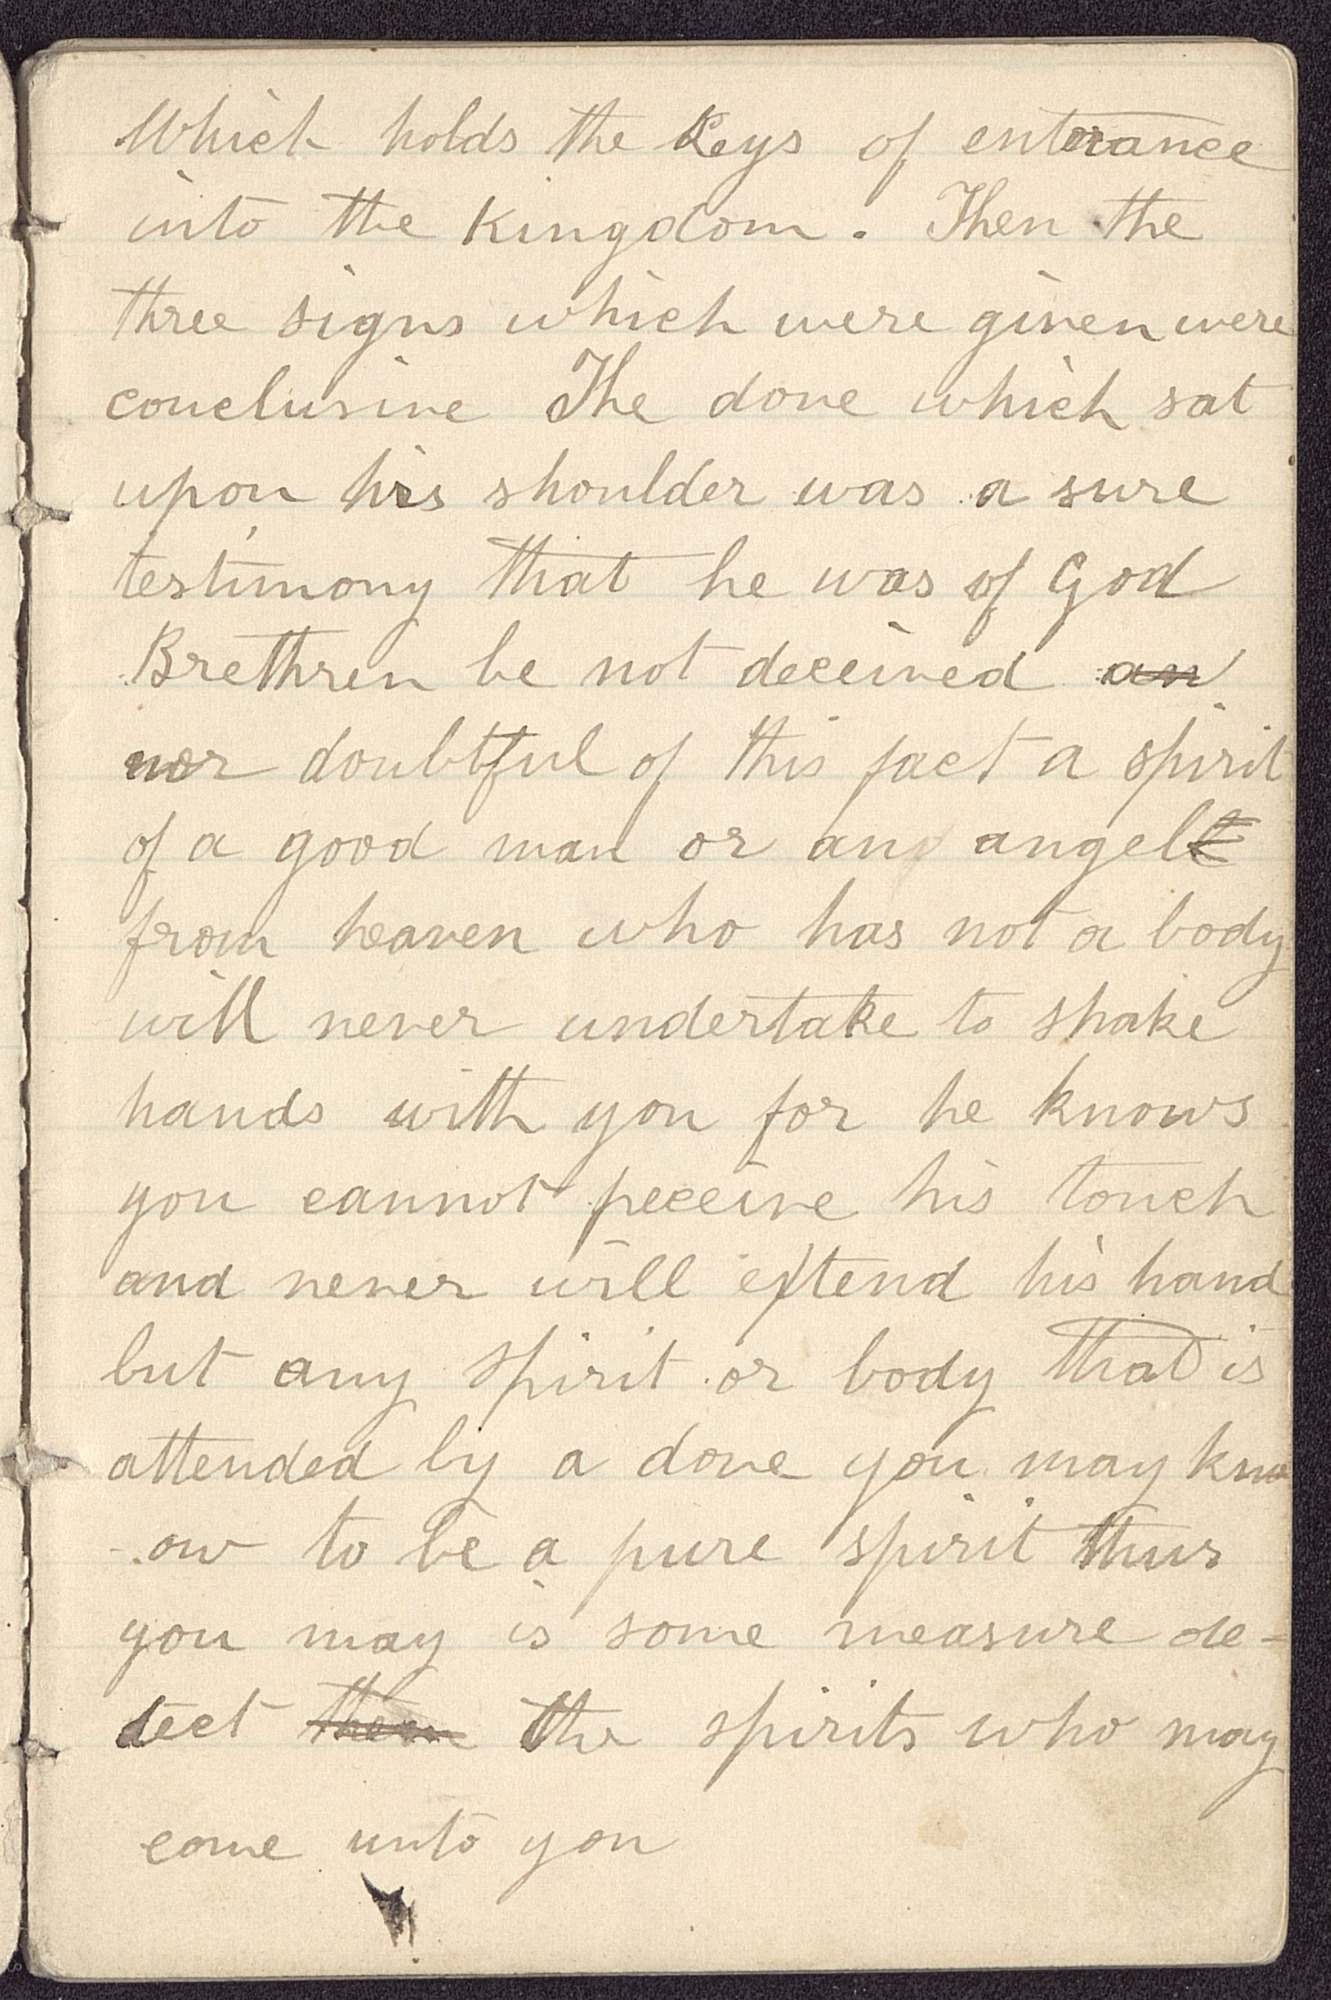 Which holds the Keys of entrance
into the Kingdom. Then the
three signs which were given were
conclusive The dove which sat
upon his shoulder was a sure
testimony that he was of God
Brethren be not deceived an
nor doubtful of this fact a spirit
of a good man or an angel
from heaven who has not a body
will never undertake to shake
hands with you for he knows
you cannot peceive his touch
and never will extend his hand
but any spirit or body that is
attended by a dove you may kno
ow to be a pure spirit thus
you may is some measure de-
tect them the spirits who may
come unto you